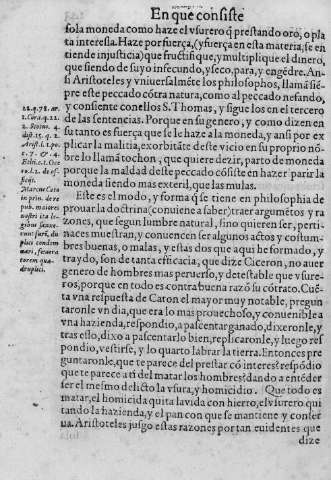 En que consiste
sola moneda como haze el vsurero q̃ prestando oro, o pla
ta interessa. Haze por fuerça, (y fuerça en esta materia, se en
tiende injusticia) que fructifique, y multiplique el dinero,
que siendo de suyo infecundo, y seco, para, y engẽdre. An-
si Aristoteles y vniuersalmẽte los philosophos, llamã siẽ-
pre este peccado cõtra natura, como al peccado nefando,
y consiente con ellos S. Thomas, y sigue los en el tercero
de las sentencias. Porque en su genero, y como dizen en
su tanto es fuerça que se le haze a la moneda, y ansi por ex
plicar la malitia, exorbitãte deste vicio en su proprio nõ-
bre lo llamã tochon, que quiere dezir, parto de moneda
porque la maldad deste peccado cõsiste en hazer parir la
moneda siendo mas exteril, que las mulas.
Este es el modo, y forma q̃ se tiene en philosophia de
prouar la doctrina (conuiene a saber) traer argumẽtos y ra
zones, que segun lumbre natural, sino quieren ser, perti-
naces muestran, y conuencen ser algunos actos y costum-
bres buenas, o malas, y estas dos que aqui he formado, y
traydo, son de tanta efficacia, que dize Ciceron, no auer
genero de hombres mas peruerso, y detestable que vsure-
ros, porque en todo es contra buena razõ su cõtrato. Cuẽ-
ta vna respuesta de Caton el mayor muy notable, pregun
taronle vn dia, que era lo mas prouechoso, y conuenible a
vna hazienda, respondio, a pascentar ganado, dixeronle, y
tras esso, dixo a pascentarlo bien, replicaronle, y luego res
pondio, vestirse, y lo quarto labrar la tierra. Entonces pre
guntaronle, que te parece del prestar cõ interes? respõdio
que te parece a ti del matar los hombres? dando a entẽder
ser el mesmo delicto la vsura, y homicidio. Que todo es
matar, el homicida quita la vida con hierro, el vsurero qui
tando la hazienda, y el pan con que se mantiene y conser
ua. Aristoteles jusgo estas razones por tan euidentes que
dize
22. q. 78. ar.
1. Cora. q. 12.
2. Scotus. 4.
dist. 15. q. 2.
Arist. l. 1. po.
Ethi. c. 1. Cice
ro. l. 2. de of-
ficijs.
Marcus Cato
in prin. de re
pub. maiores
nostri ita le-
gibus sanxe-
runt furẽ, du
plici condem
nari, fenera-
torem qua-
druplici.